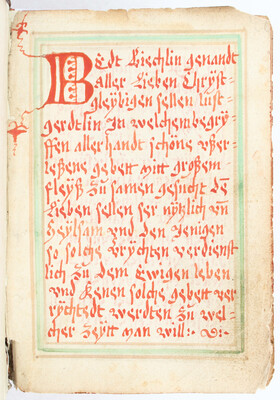 Bedt Biechlin genandt
aller Lieben Chryst-
gleybigen sellen lust-
gerdtlin In welchem begry-
ffen aller handt schöne vßer-
leßene gebett mitt großem
fleyß Zu samen gesucht dē
Lieben sellen ser nyzlich vn̄
Heylsam vnd den Jenigen
so solche Brychten verdienst
lich Zu dem Ewigen leben.
vnd Kenen solche gebett ver
rychtedt werdten Zu wel-
cher Zeytt man will: